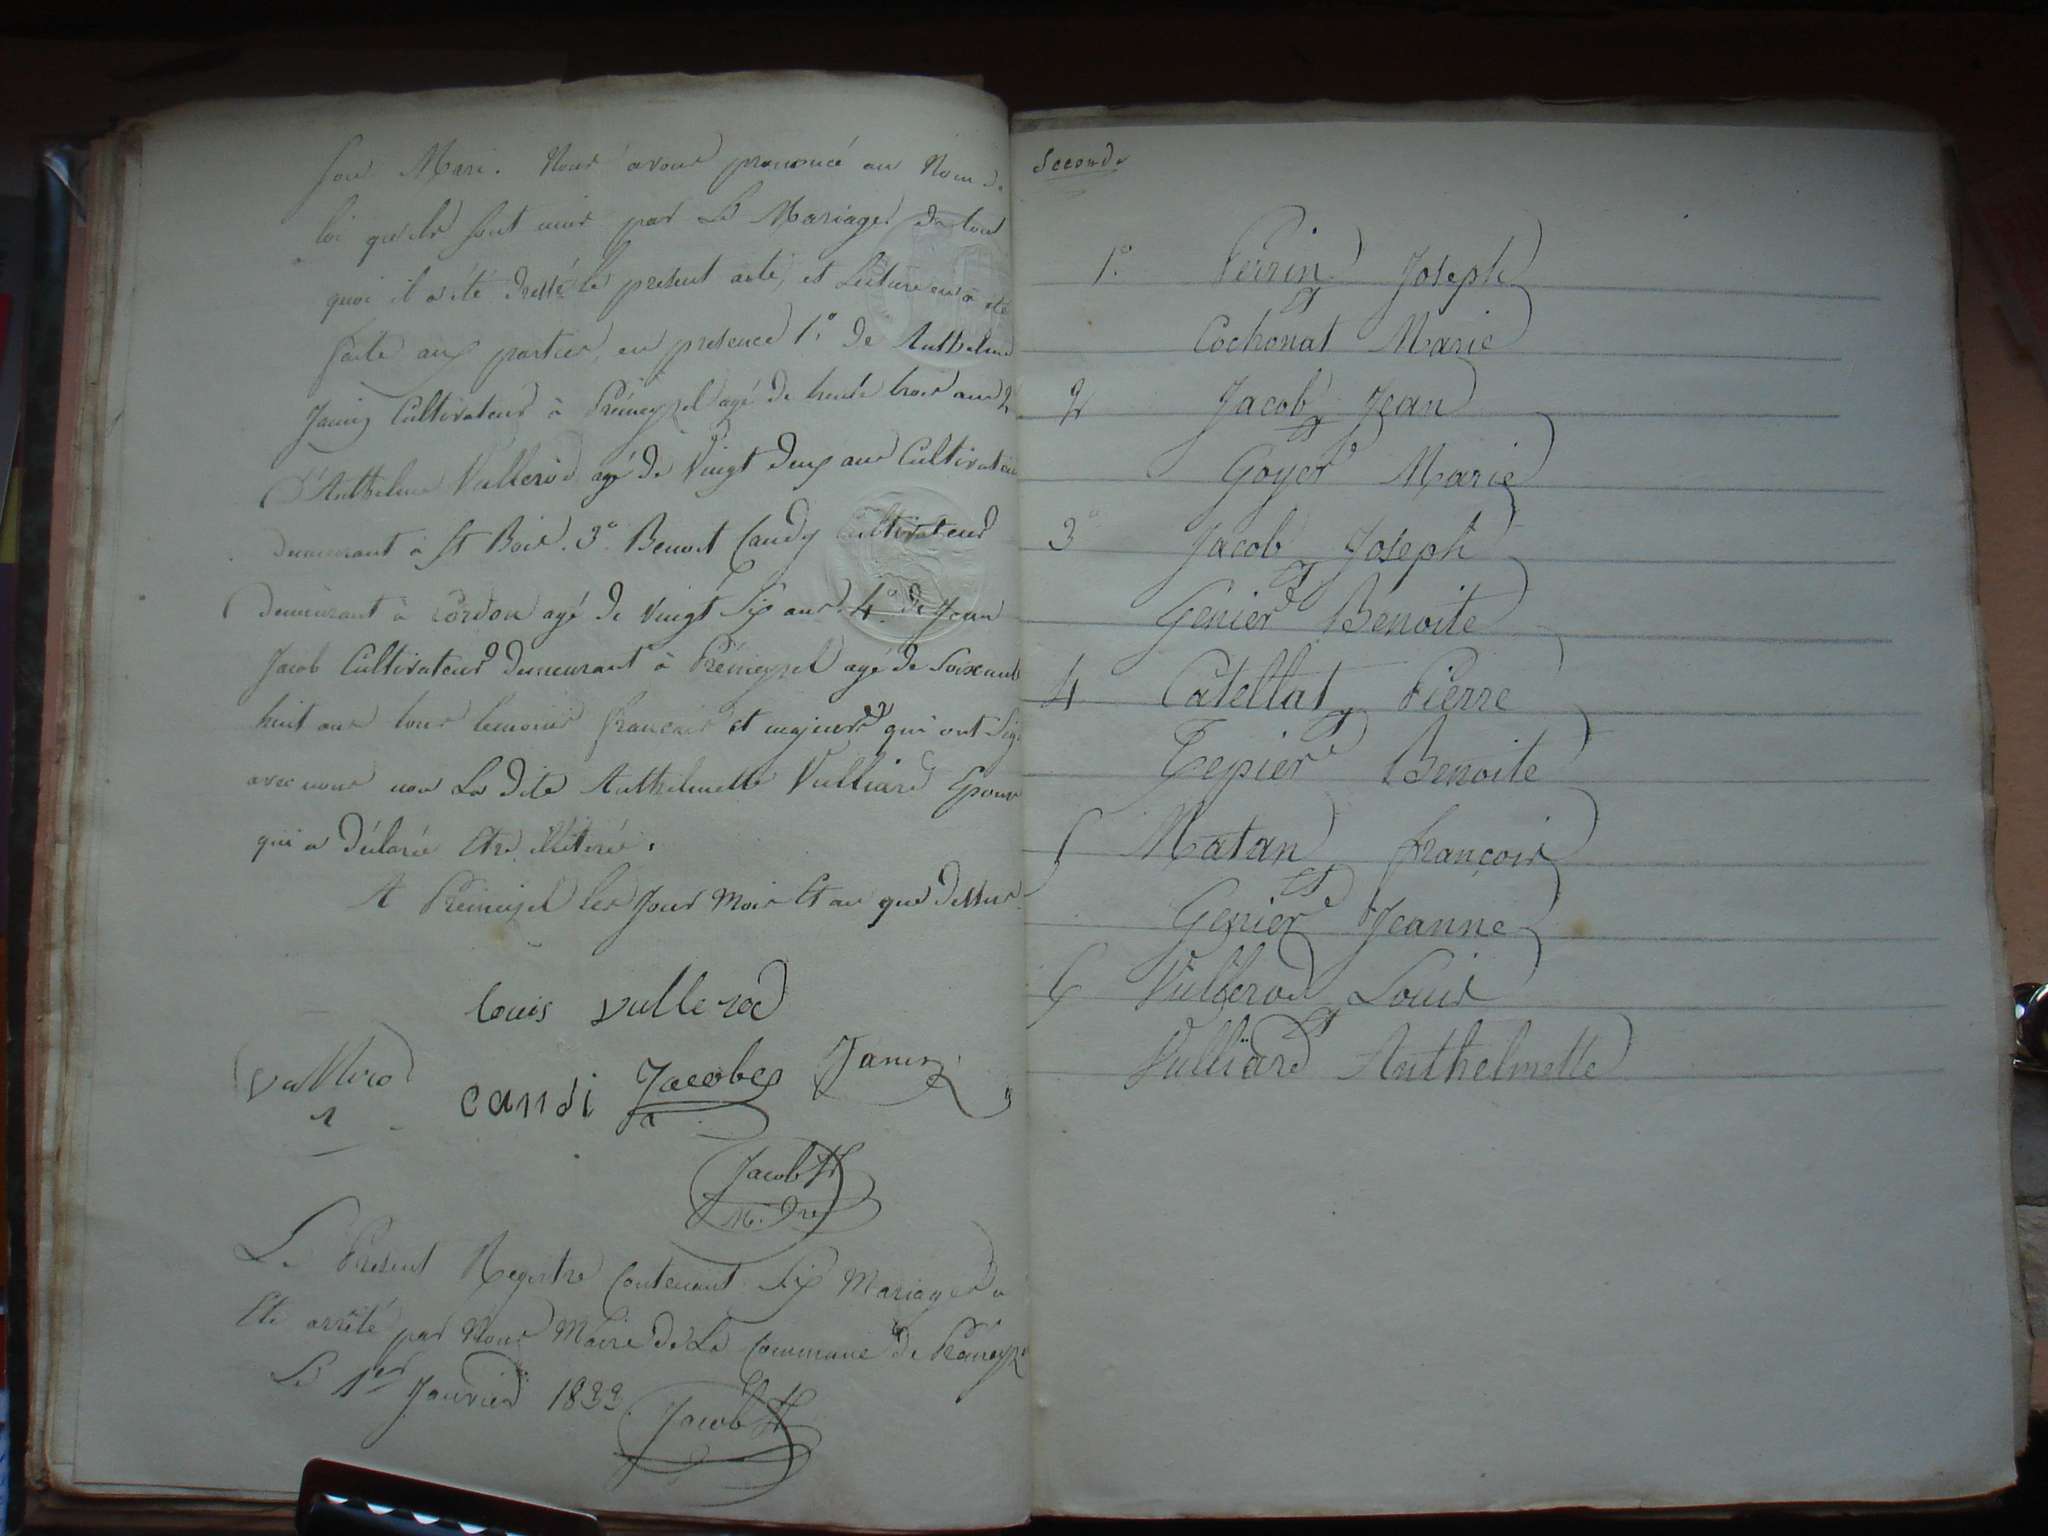 son Mari. Nous avons prononcé au Nom de
loi qu'ils sont unis par Le Mariage. de tout
quoi il a été dressé le present acte, et Lecture en a été
faite aux parties, en presence 1.° de Anthelme
Janin Cultivateur à Prémeyzel agé de trente trois ans 2
D'Anthelme Vullerod agé de Vingt deux ans Cultivateur
demeurant à St Bois. 3.° Benoit Candy Cultivateur
demeurant à Cordon agé de vingt Six ans. 4.° de Jean
Jacob Cultivateur demeurant à Prémeyzel agé de Soixante
huit ans tous temoins français et majeurs qui ont Sig
avec nous non La dite Anthelmette Vulliard Epouse
qui a déclaré Etre illiterée.
A Prémeyzel les Jour Mois Et an que dessus
Louis Vullerod
Vullerod
candi Jacob Janin
Jacob
Le Present Registre Contenant Six Mariages a
Eté arrêté par Nous Maire de La Commune de Prémeyzel
Le 1er Janvier 1833
Jacob
1° Perrin Joseph
Et
Cochonat Marie
2 Jacob Jean
Et
Goyet Marie
3° Jacob Joseph
Et
Genier Bénoite
4 Catellat Pierre
Et
Benoite
5 Matan françois
Et
Genier Jeanne
6 Vullerod Louis
Et
Vulliard Anthelmette